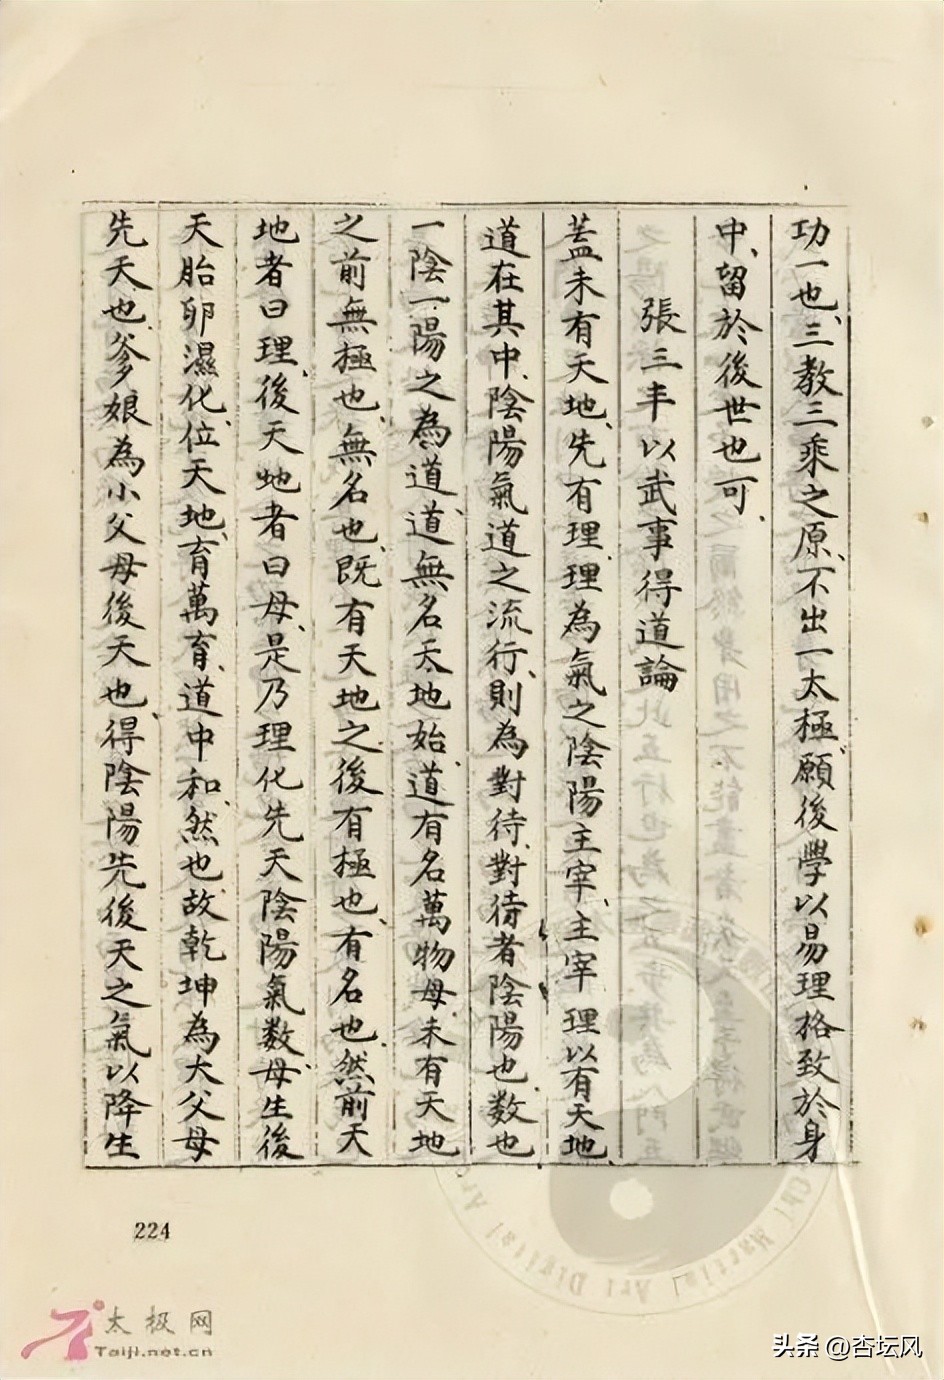 功一也、三教三乘之原、不出一太極、願後學以易理格致於身
中、留於後世也可、
張三丰以武事得道論
蓋未有天地、先有理、理為氣之陰陽主宰、主宰理以有天地、
道在其中、陰陽氣道之流行、則為對待、對待者陰陽也、数也
一陰一陽之為道、道無名天地始、道有名萬物母、未有天地
之前無極也、無名也、既有天地之後有極也、有名也、然前天
地者曰理、後天地者曰母、是乃理化先天陰陽氣数、母生後
天胎卵濕化、位天地、育萬育、道中和、然也、故乾坤為大父母
先天也、爹娘為小父母後天也、得陰陽先後天之氣以降生
224
太极网
Taiji.net.cn
头条 @杏坛风